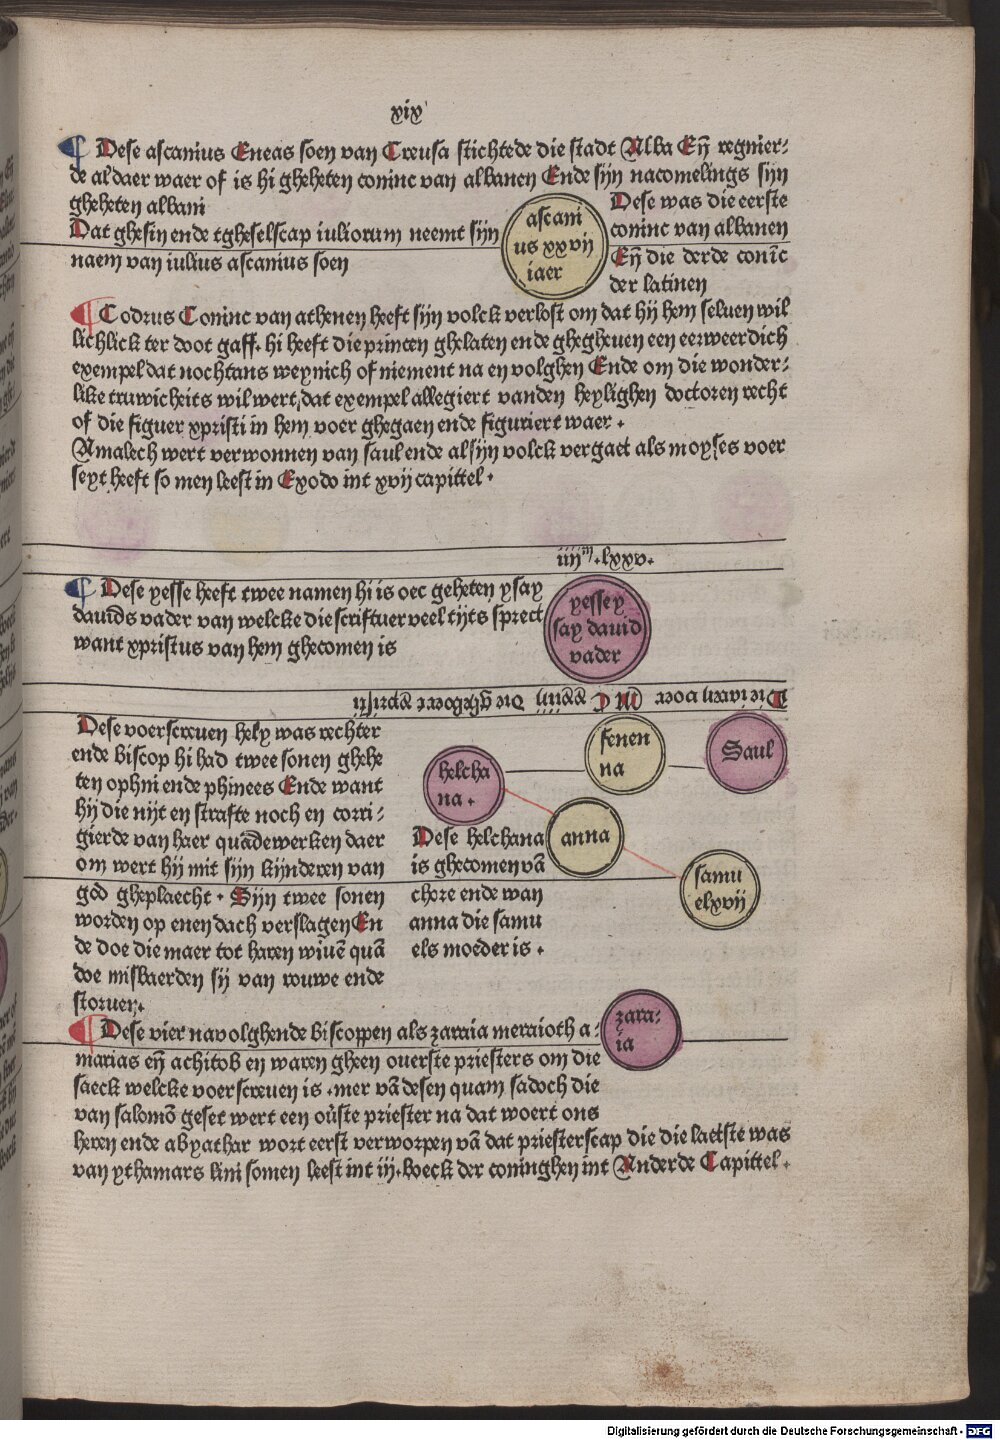 xix
¶ Dese ascanius Eneas soen van Creusa stichtede die stadt Alba Eñ regnier-
de aldaer waer of is hi gheheten coninc van albanen Ende sijn nacomelings sijn
gheheten albani
Dat ghesin ende tgheselscap iuliorum neemt sijn
naem van iulius ascanius soen
ascani
us xxvij
iaer
Dese was die eerste
coninc van albanen
Eñ die derde conīc
der latinen
¶ Codrus Coninc van athenen heeft sijn volck verlost om dat hij hem seluen wil
lichlick ter doot gaff. hi heeft die princen ghelaten ende ghegheuen een eerweerdich
exempel dat nochtans weynich of niement na en volghen Ende om die wonder-
like truwicheits wil wert dat exempel allegiert vanden heylighen doctoren recht
of die figuer xpristi in hem voer ghegaen ende figuriert waer.
Amalech wert verwonnen van saul ende al sijn volck vergaet als moyses voer
seyt heeft so men leest in Exodo int xvij capittel.
iiijᵐ.lxxv.
¶ Dese yesse heeft twee namen hi is oec geheten ysay
dauids vader van welcke die scriftuer veel tijts sprect
want xpristus van hem ghecomen is
yesse y
say dauid
vader
Die iaren voer M C xxiiij Die gheboerte xpristi
Dese voerscreuen hely was rechter
ende biscop hi had twee sonen ghehe
ten ophni ende phinees Ende want
hij die niet en strafte noch en corri-
gierde van haer quade werken daer
om wert hij mit sijn kijnderen van
god gheplaecht. Sijn twee sonen
worden op enen dach verslagen En
de doe die maer tot haren wiuē quā
doe misbaerden sij van rouwe ende
storuen.
helcha
na.
fenen
na
Saul
anna
samu
el xvij
Dese helchana
is ghecomen vā
chore ende wan
anna die samu
els moeder is.
¶ Dese vier navolghende biscoppen als zaraia meraioth a-
marias eñ achitob en waren gheen ouerste priesters om die
saeck welcke voerscreuen is. mer vā desen quam sadoch die
van salomō geset wert een oūste priester na dat woert ons
heren ende abyathar wort eerst verworpen vā dat priesterscap die die laetste was
van ythamars lini so men leest int iij. boeck der coninghen int Anderde Capittel.
zara-
ia
Digitalisierung gefördert durch die Deutsche Forschungsgemeinschaft - DFG